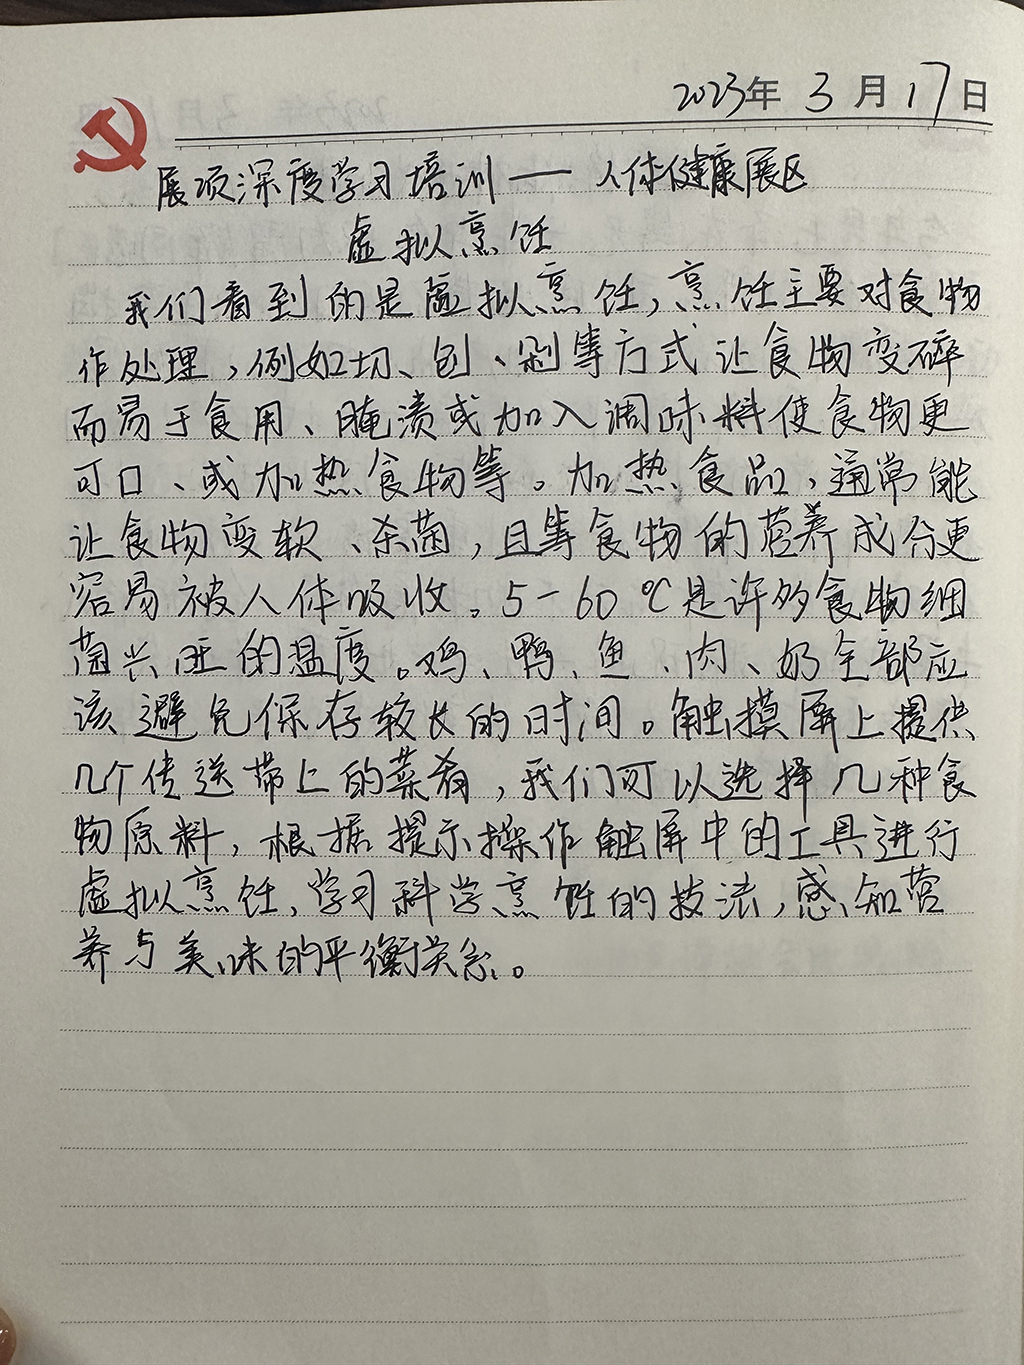 2023年 3 月 17 日
展项深度学习培训——人体健康展区
虚拟烹饪
我们看到的是虚拟烹饪,烹饪主要对食物
作处理,例如切、刨、剁等方式让食物变碎
而易于食用、腌渍或加入调味料使食物更
可口、或加热食物等。加热食品,通常能
让食物变软、杀菌,且等食物的营养成分更
容易被人体吸收。5-60℃是许多食物细
菌兴旺的温度。鸡、鸭、鱼、肉、奶全部应
该避免保存较长的时间。触摸屏上提供
几个传送带上的菜肴,我们可以选择几种食
物原料,根据提示操作触屏中的工具进行
虚拟烹饪,学习科学烹饪的技法,感知营
养与美味的平衡关系。